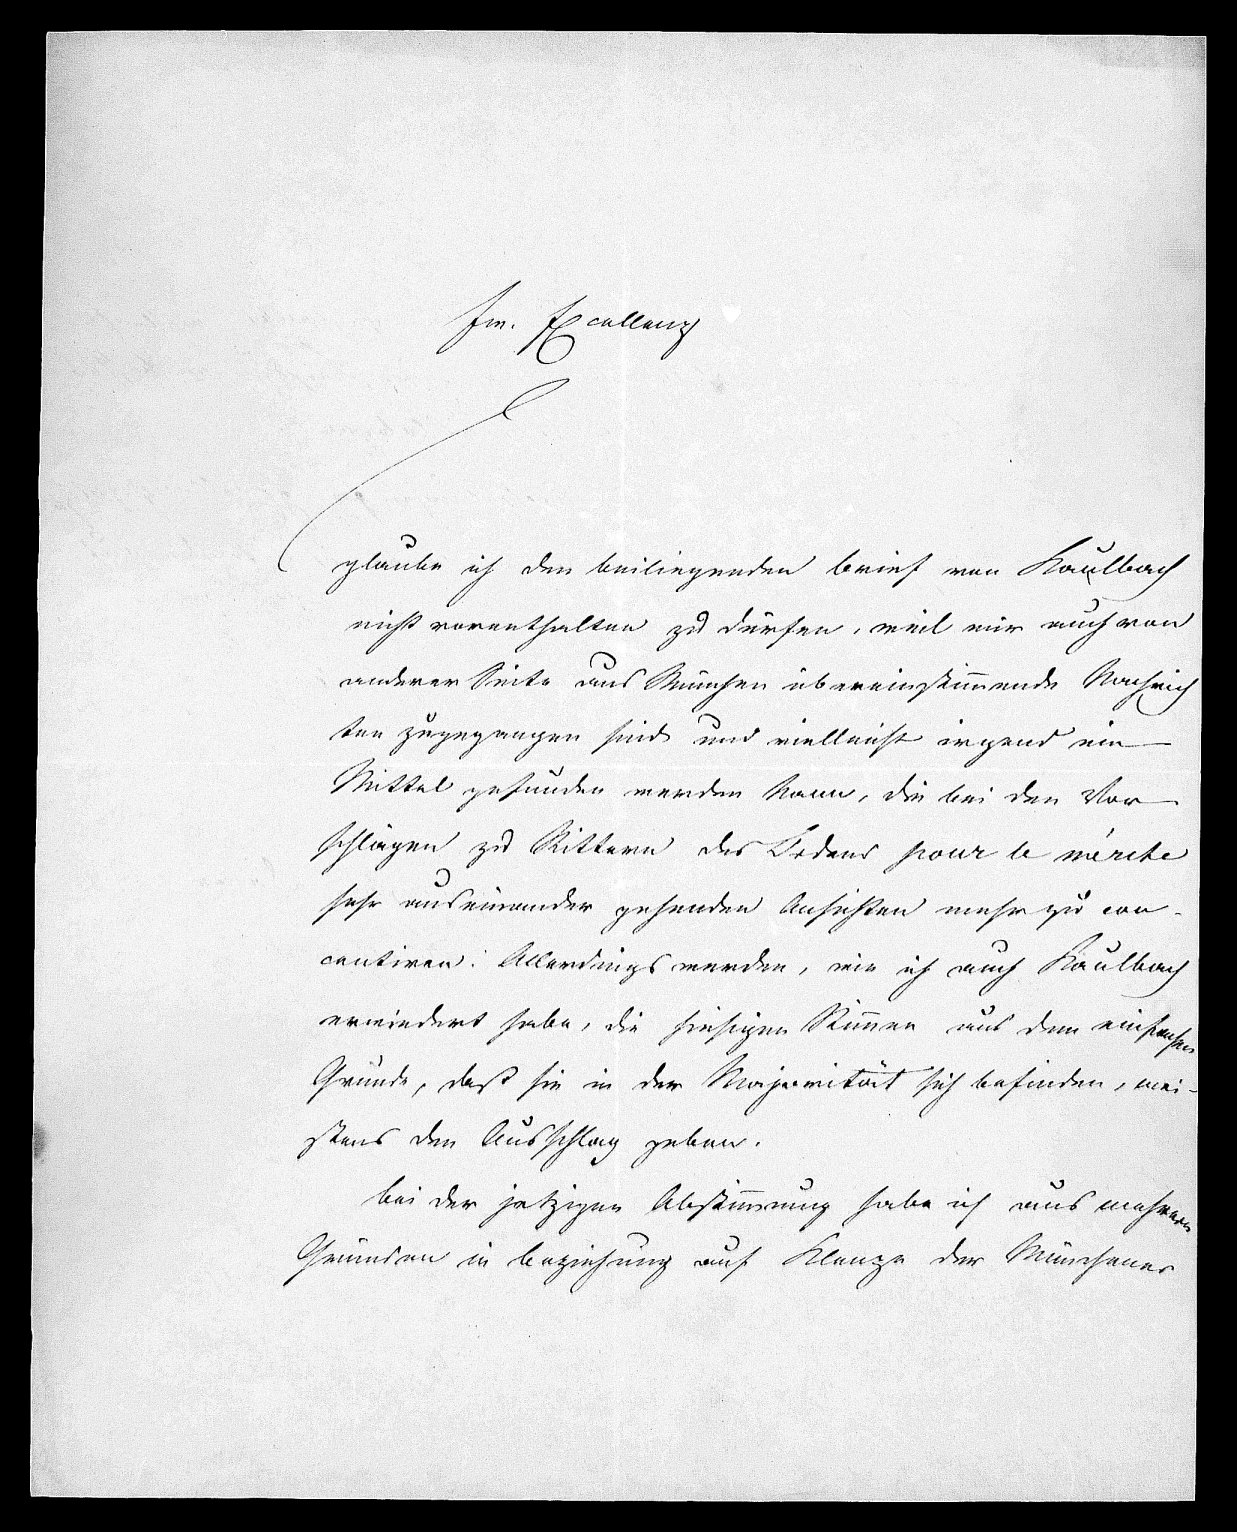 Ew. Excellenz
glaube ich den beiliegenden Brief von Kaulbach
nicht vorenthalten zu dürfen, weil mir auch von
anderer Seite aus München übereinstimmende Nachrich
ten zugegangen sind und vielleicht irgend ein
Mittel gefunden werden kann, die bei den Vor
schlägen zu Rittern des Ordens pour le mérite
sehr auseinander gehenden Ansichten mehr zu con-
centiren. Allerdings werden, wie ich auch Kaulbach
erwiedert habe, die hiesigen Stimmen aus dem einfachen
Grunde, daß sie in der Majorität sich befinden, mei-
stens den Ausschlag geben.
Bei der jetzigen Abstimmung habe ich aus mehreren
Gründen in Beziehung auf Klenze der Münchener